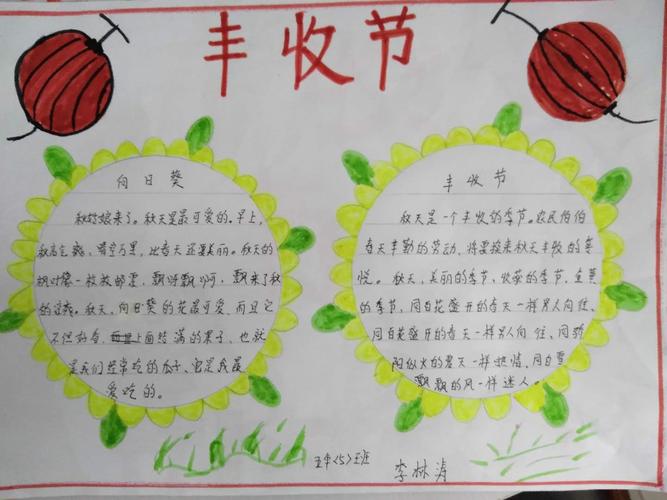 丰收节
向日葵
秋姑娘来了。秋天是最可爱的。早上,
秋高气爽,晴空万里,比春天还要美丽。秋天的
枫叶像一枚枚邮票,飘呀飘啊,飘来了秋
的凉爽。秋天,向日葵的花最可爱,而且它
不但好看,上面结满的果子,也就
是我们经常吃的瓜子,也是我最
爱吃的。
丰收节
秋天是一个丰收的季节。农民伯伯
每天辛勤的劳动,将要接来秋天丰收的喜
悦。秋天,美丽的季节,收获的季节,金黄
的季节,同百花盛开的春天一样另人向往、
同百花盛开的春天一样另人向往、同骄
阳似火的夏天一样热情、同白雪
飘飘的风一样迷人。
五年(5)班 李林涛